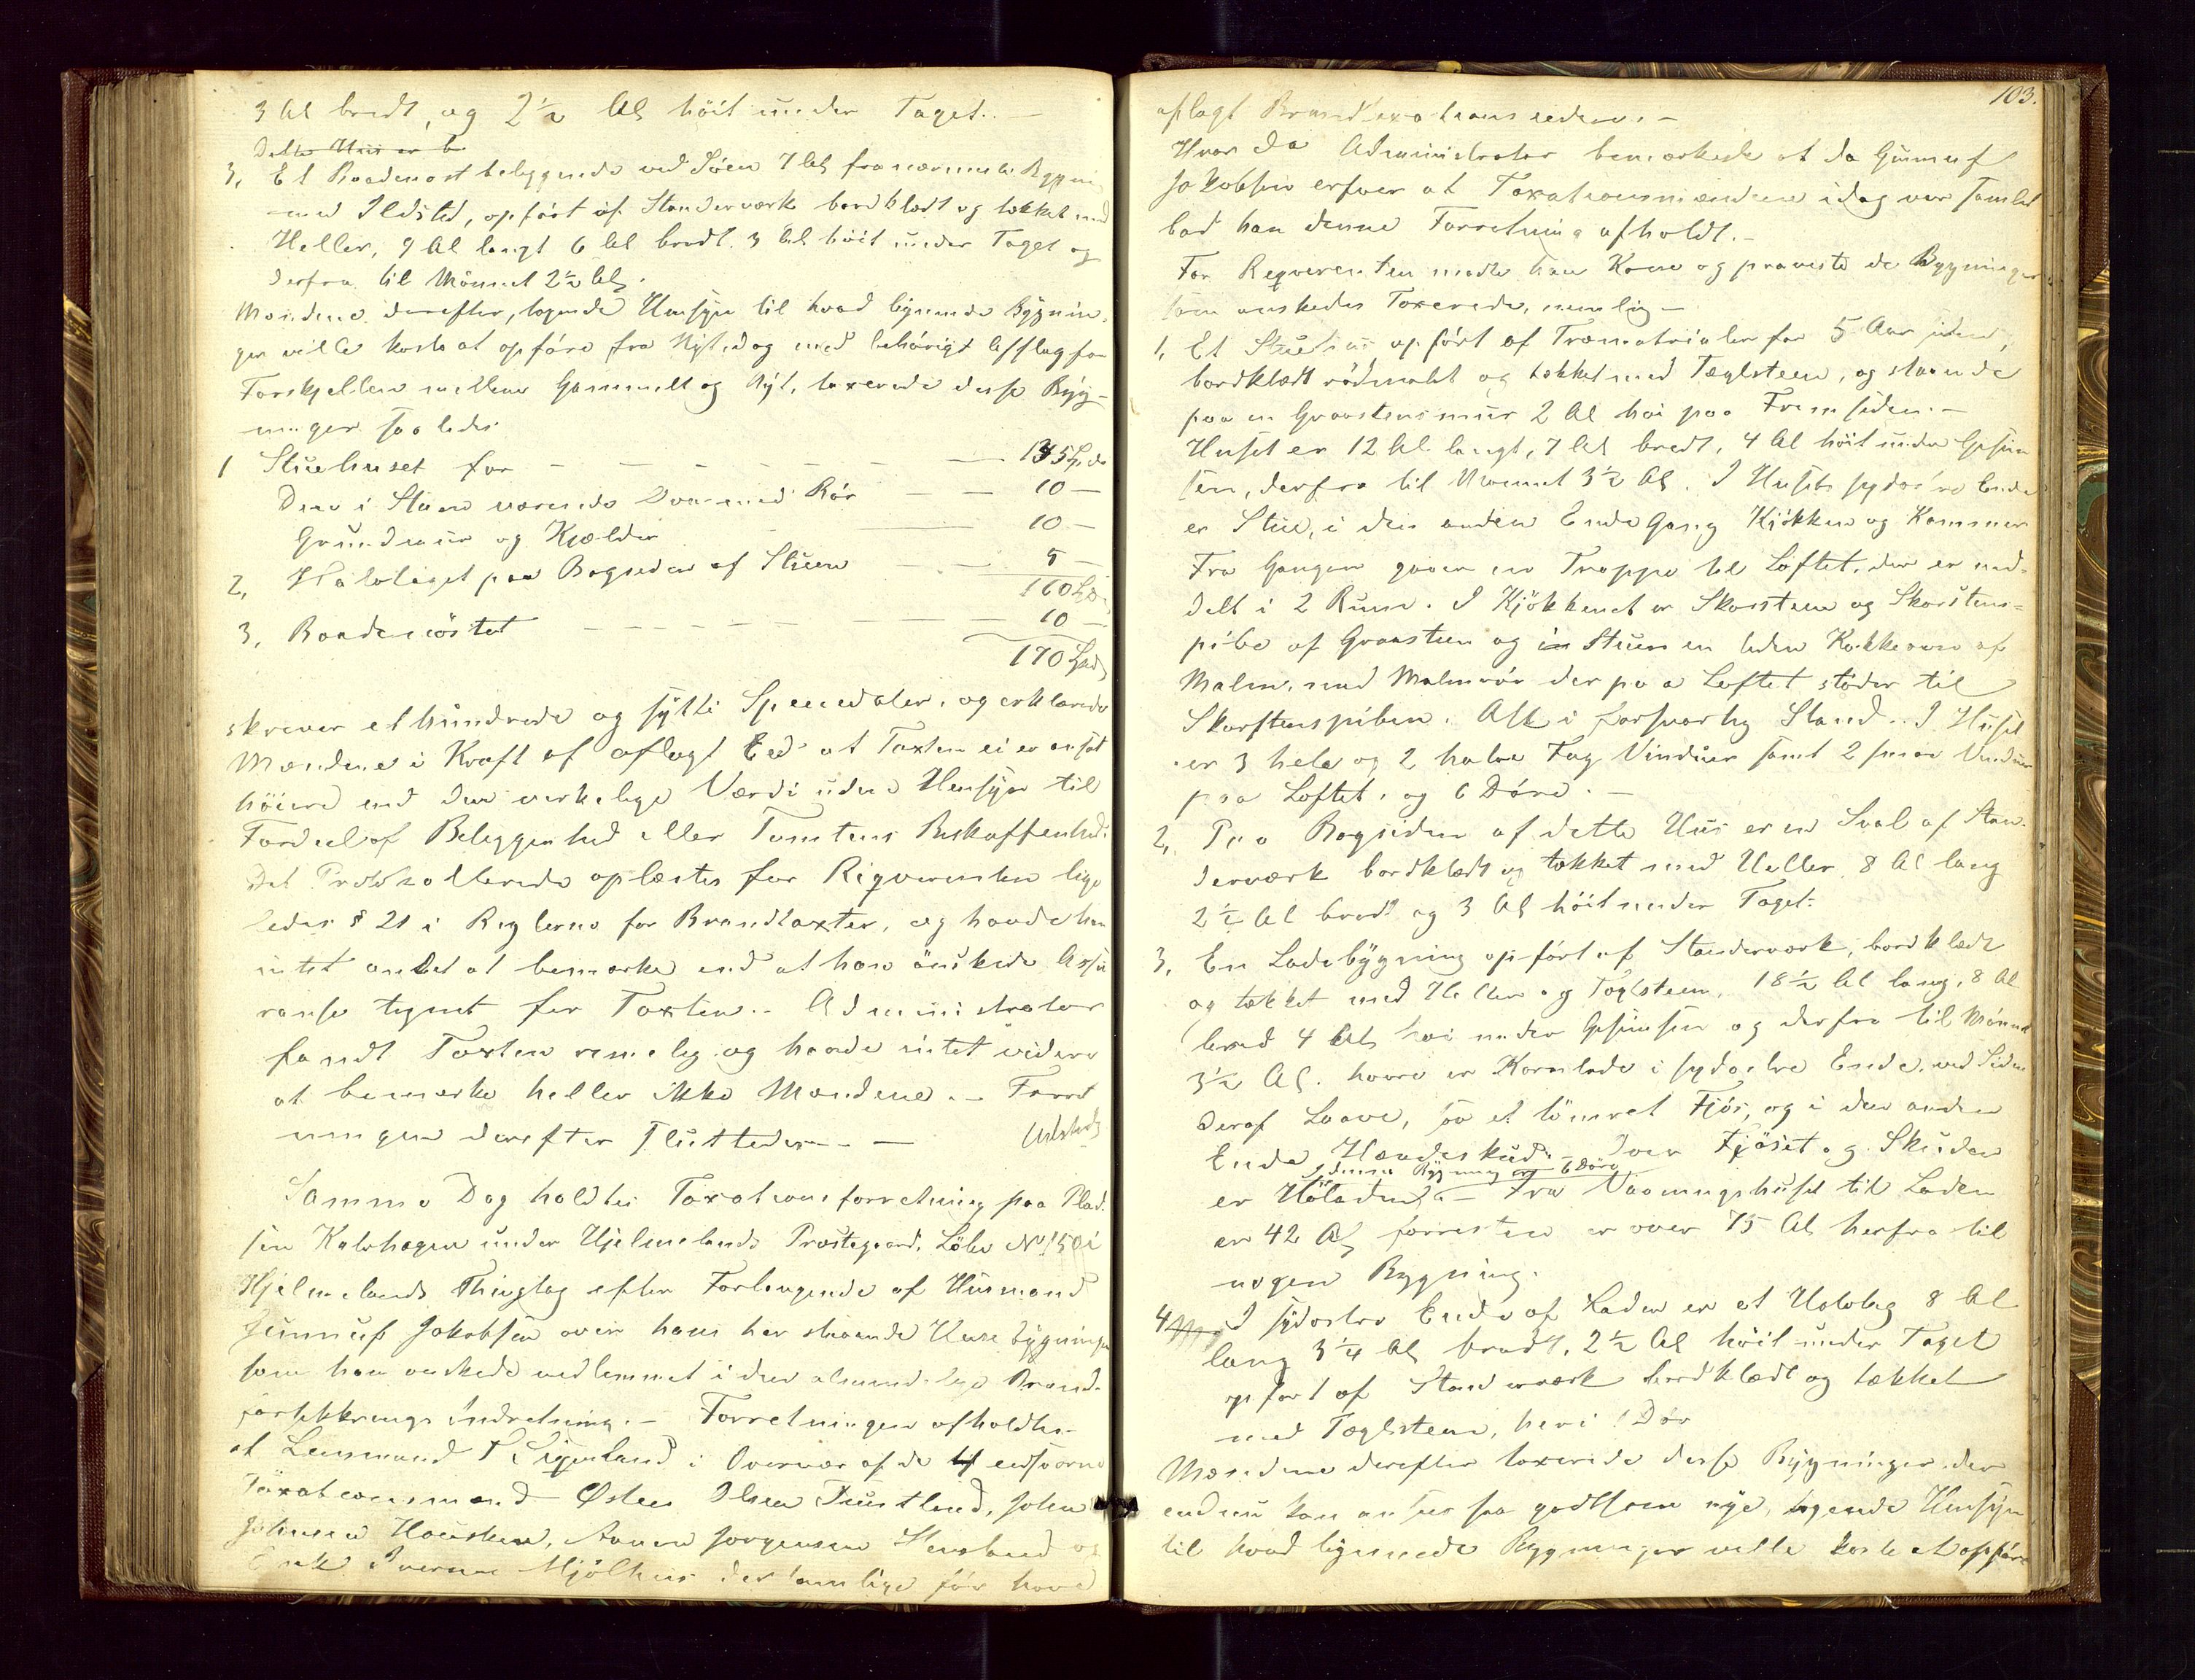 3 Al bredt, og 2½ Al höit under Taget. —
Dette Huus er b
3, Et Baadenøst beliggende ved Söen 7 Al fra nærmeste Bygni
med Ildsted, opfört af Standerværk bordklædt og tækket med
Heller, 9 Al langt 6 Al bredt. 3 Al höit under Taget og
derfra til Mönnet 2½ Al.
Mændene derefter, tagende Hensyn til hvad lignende Bygnin-
ger ville koste at opföre fra Nyt, og med behörigt Afslag for
Forskjellen mellem Gammelt og Nyt, taxerede disse Byg-
ninger saaledes
1 Stuehuset for — — — — — 135 Spd
Den i Stuen værende Ovn med Rör — — 10 —
Grundmuur og Kjælder — — 10 —
2, Halvtaget paa Bagsiden af Stuen — 5 —
160 Spd
3, Baadenöstet — — — — — 10 —
170 Spd
skriver et hundrede og sytti Speciedaler, og erklærede
Mændene i Kraft af aflagt Eed at Taxten ei er ansat
höiere end den virkelige Værdi uden Hensyn til
Fordeel af Beliggenhed eller Tomtens Beskaffenhed.
Det Protokollerede oplæstes for Reqvirenten lige
ledes § 21 i Reglerne for Brandtaxter, og havde han
intet andet at bemærke end at han önskede Assu
ranse tegnet for Taxten. Administrator
fandt Taxten rimelig og havde intet videre
at bemærke heller ikke Mændene. — Forret
ningen derefter sluttedes. —
Udstedt
Samme Dag holdtes Taxationsforretning paa Plad-
sen Kalvhagen under Hjelmelands Præstegaard, Löbe No 150 i
Hjelmelands Thinglag efter Forlangende af Huusmand
Gunnuf Jakobsen over hans her staaende Huusebygninger
som han önskede indlemmet i den almindelige Brand-
forsikkrings Indretning. — Forretningen afholdtes
af Lensmand T Sigmland i Overvær af de 4 eedsvorne
Taxationsmænd Østen Olsen Tuntland, John
Johnsen Hausken, Aamen Jörgensen Hensland og
Erik Iversen Mjölhus der samtlige för have
103.
aflagt Brandtaxationseeden. —
Hvor da Administrator bemærkede at da Gunnuf
Jakobsen erfoer at Taxationsmændene idag var samlet
bad han denne Forretning afholdt. —
For Reqvirenten mødte hans Kone og paaviste de Bygninger
som önskedes Taxerede, nemlig —
1, Et Stuehuus opfört af Træmatrialer for 5 Aar siden,
bordklædt rödmalet og tækket med Tæglsteen, og staaende
paa en Graasteensmuur 2 Al höi paa Fremsiden. —
Huset er 12 Al langt, 7 Al bredt, 4 Al höit under Gesim
sen, derfra til Mönnet 3½ Al. I Husets sydöstre Ende
er Stue, i den anden Ende Gang Kjökken og Kammer
Fra Gangen gaaer en Trappe til Loftet, der er ind-
delt i 2 Rum. I Kjökkenet er Skorsteen og Skorsteens-
pibe af Graasteen og i Stuen en liden Kakkelovn af
Malm, med Malmrör der paa Loftet stöder til
Skorsteenspiben. Alt i forsvarlig Stand. I Huset
er 3 hele og 2 halve Fag Vinduer samt 2 smaa Vinduer
paa Loftet, og 6 Döre. —
2, Paa Bagsiden af dette Huus er en Sval af Stan-
derværk bordklædt og tækket med Heller 8 Al lang
2½ Al bredt og 3 Al höit under Taget.
3, En Ladebygning opfört af Standerværk, bordklædt
og tækket med Heller og Tæglsteen, 18½ Al lang, 8 Al
bred 4 Al höi under Gesimsen og derfra til Mönnet
3½ Al. hvori er Kornlade i sydöstre Ende, ved Siden
deraf Laave, saa et tömret Fjös, og i den anden
Ende Hændeskud. — Over Fjöset og Skuden
I denne Bygning er 6 Döre
er Höladen. — Fra Vaaningshuset til Laden
er 42 Al forresten er over 75 Al herfra til
nogen Bygning.
4 I sydöstre Ende af Laden er et Halvtag 8 Al
lang 3¼ Al bredt, 2½ Al höit under Taget
opfört af Standerværk bordklædt og tækket
med Tæglsteen, heri 1 Dör
Mændene derefter taxerede disse Bygninger der
endnu kan ansees saa godt som nye, tagende Hensyn
til hvad lignende Bygninger ville koste at opföre